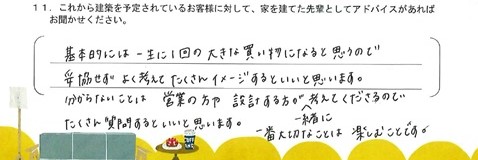 11. これから建築を予定されているお客様に対して、家を建てた先輩としてアドバイスがあれば
お聞かせください。
基本的には一生に1回の大きな買い物になると思うので
妥協せず よく考えてたくさんイメージするといいと思います。
分からないことは 営業の方や 設計する方が一緒に考えてくださるので
たくさん質問するといいと思います。
一番大切なことは 楽しむことです。